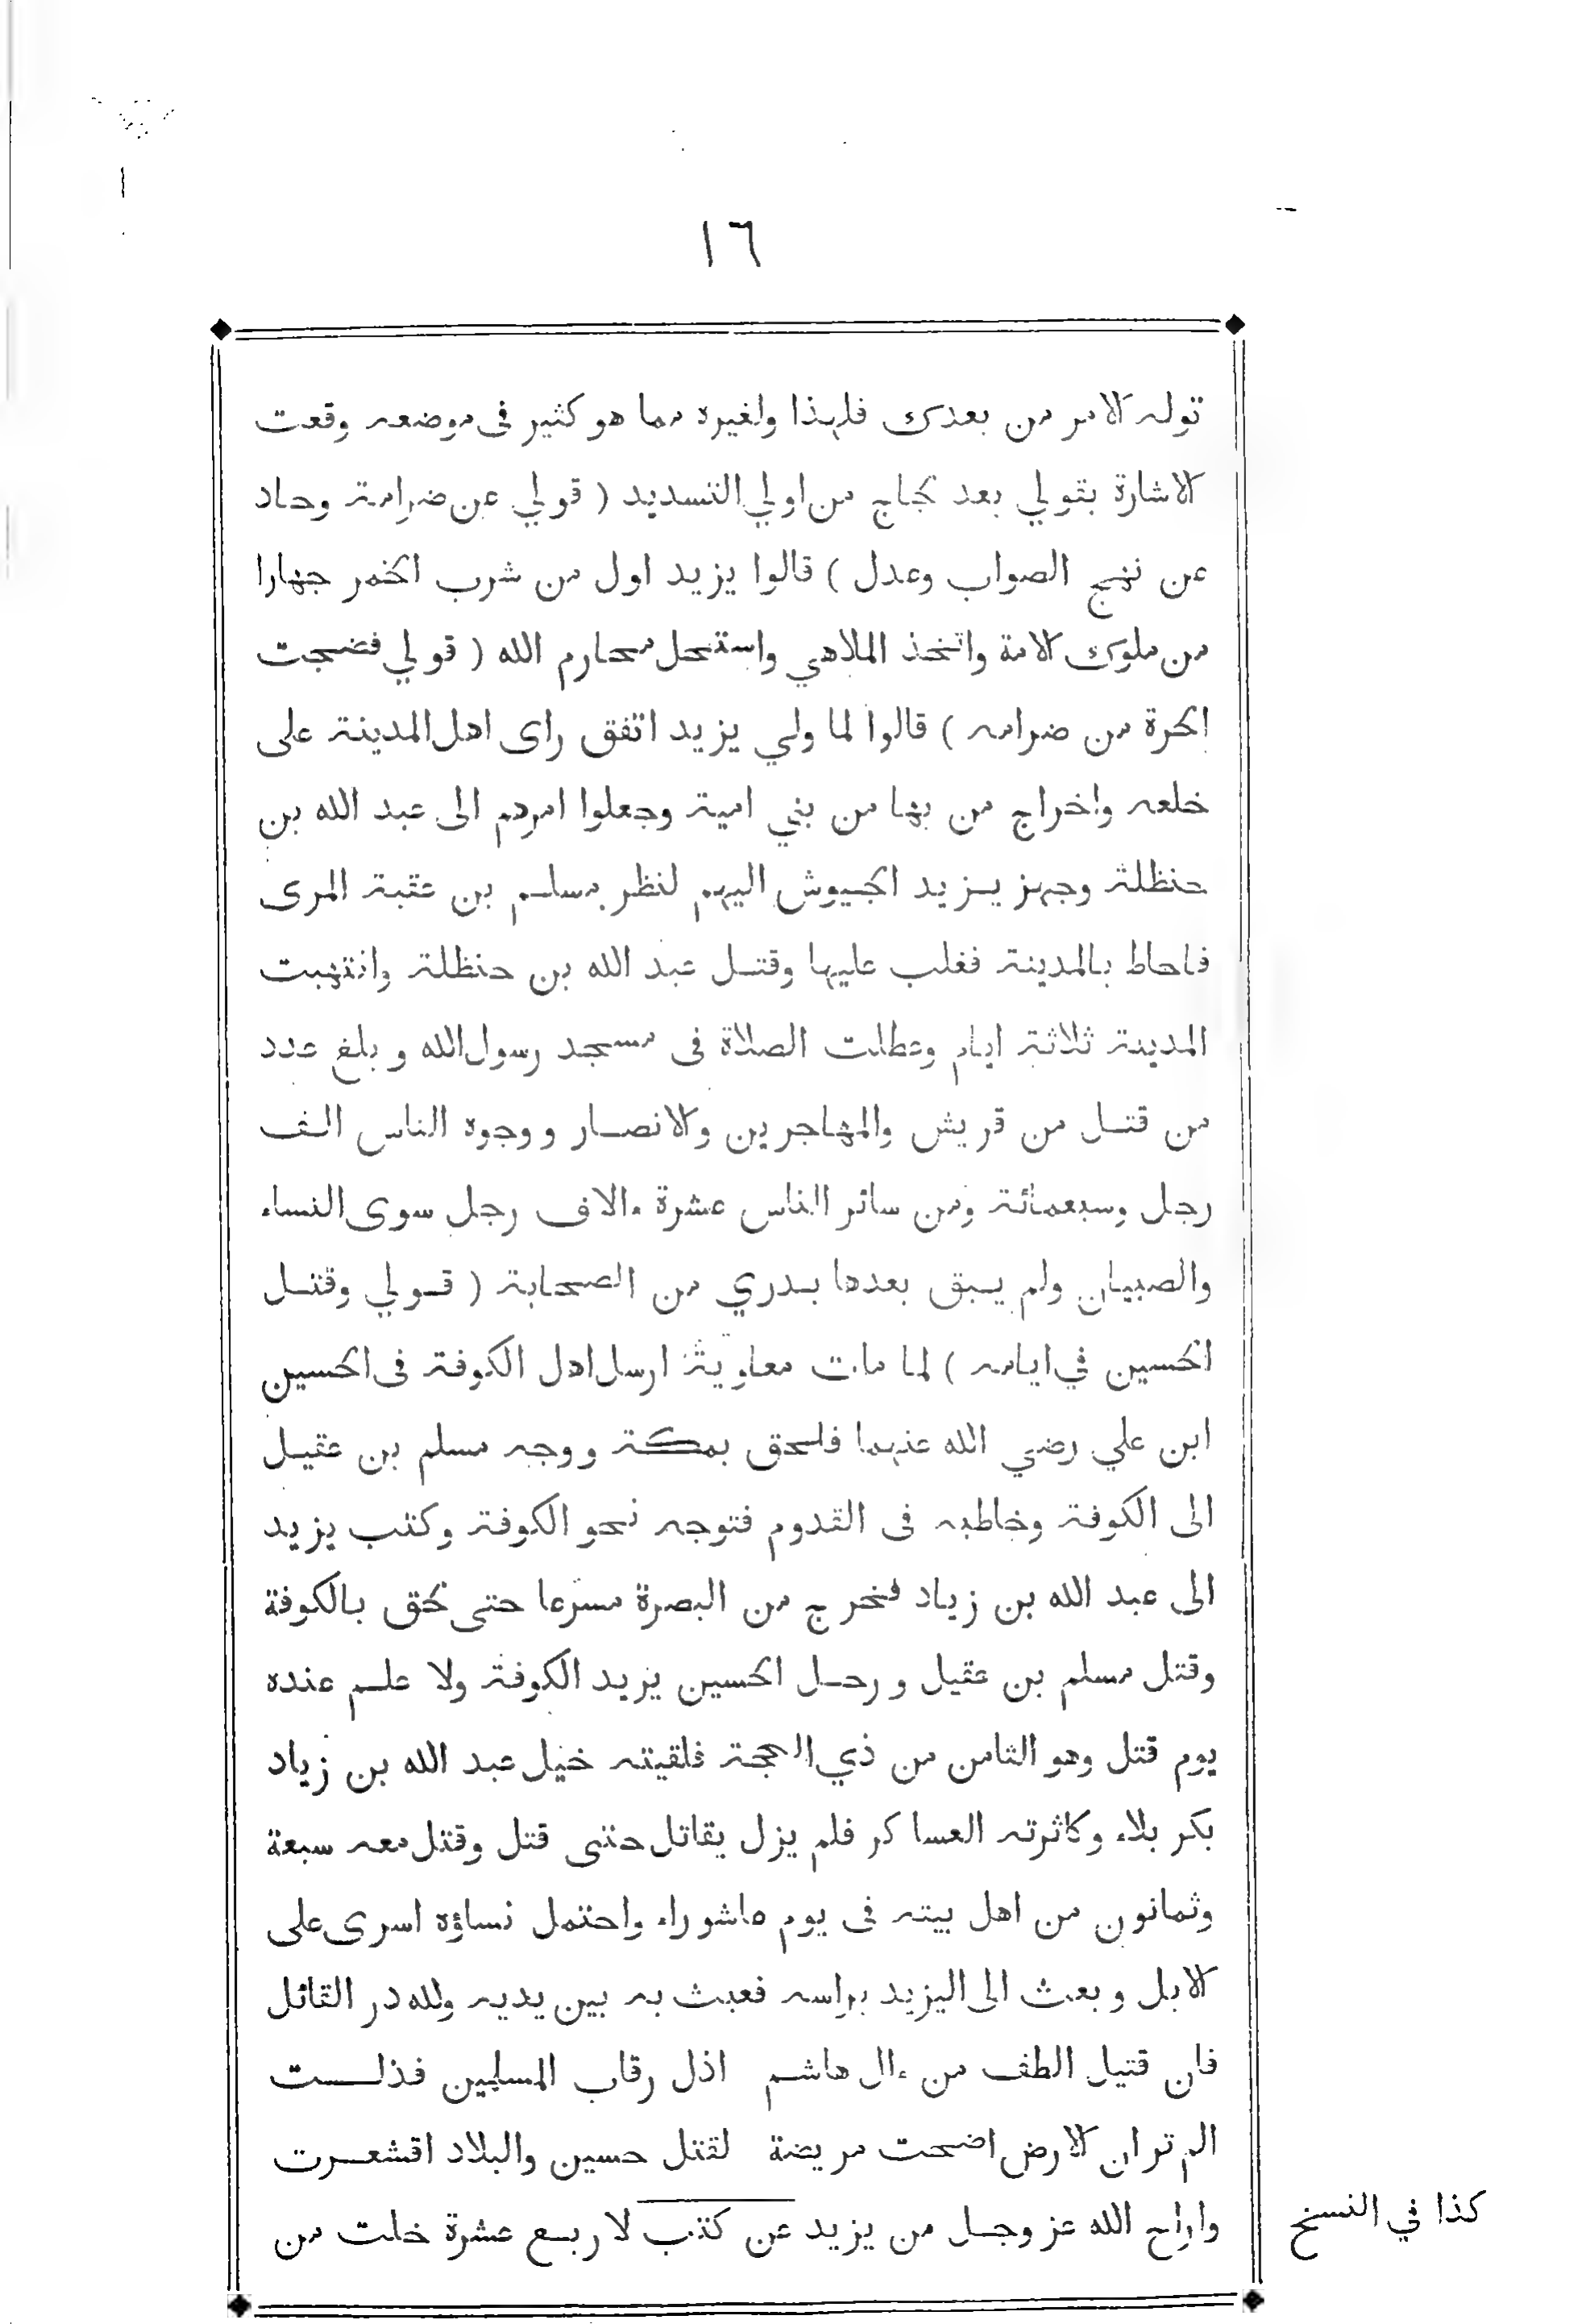 ١٦
توله الامر من بعدك فلهذا ولغيره مما هو كثير فى موضعه وقعت
الاشارة بقولي بعد لجاج من اولي التسديد ( قولي عن ضرامة وحاد
عن نهج الصواب وعدل ) قالوا يزيد اول من شرب الخمر جهارا
من ملوك الامة واتخذ الملاهي واستحل محارم الله ( قولي فضجت
الحرة من ضرامه ) قالوا لما ولي يزيد اتفق راى اهل المدينة على
خلعه واخراج من بها من بني امية وجعلوا امرهم الى عبد الله بن
حنظلة وجهز يزيد الجيوش اليهم لنظر مسلم بن عقبة المرى
فاحاط بالمدينة فغلب عليها وقتل عبد الله بن حنظلة وانتهبت
المدينة ثلاثة ايام وعطلت الصلاة فى مسجد رسول الله وبلغ عدد
من قتل من قريش والمهاجرين والانصار ووجوه الناس الف
رجل وسبعمائة ومن سائر الناس عشرة ءالاف رجل سوى النساء
والصبيان ولم يبق بعدها بدري من الصحابة ( قولي وقتل
الحسين في ايامه ) لما مات معاوية ارسل اهل الكوفة فى الحسين
ابن علي رضي الله عنهما فلحق بمكة ووجه مسلم بن عقيل
الى الكوفة وخاطبه فى القدوم فتوجه نحو الكوفة وكتب يزيد
الى عبد الله بن زياد فخرج من البصرة مسرعا حتى لحق بالكوفة
وقتل مسلم بن عقيل ورحل الحسين يزيد الكوفة ولا علم عنده
يوم قتل وهو الثامن من ذي الحجة فلقيته خيل عبد الله بن زياد
بكربلاء وكاثرته العساكر فلم يزل يقاتل حتى قتل وقتل معه سبعة
وثمانون من اهل بيته فى يوم عاشوراء واحتمل نساؤه اسرى على
الابل وبعث الى اليزيد براسه فعبث به بين يديه ولله در القائل
فان قتيل الطف من ءال هاشم اذل رقاب المسلمين فذلت
الم تر ان الارض اضحت مريضة لقتل حسين والبلاد اقشعرت
واراح الله عز وجل من يزيد عن كثب لاربع عشرة خلت من
كذا في النسخ